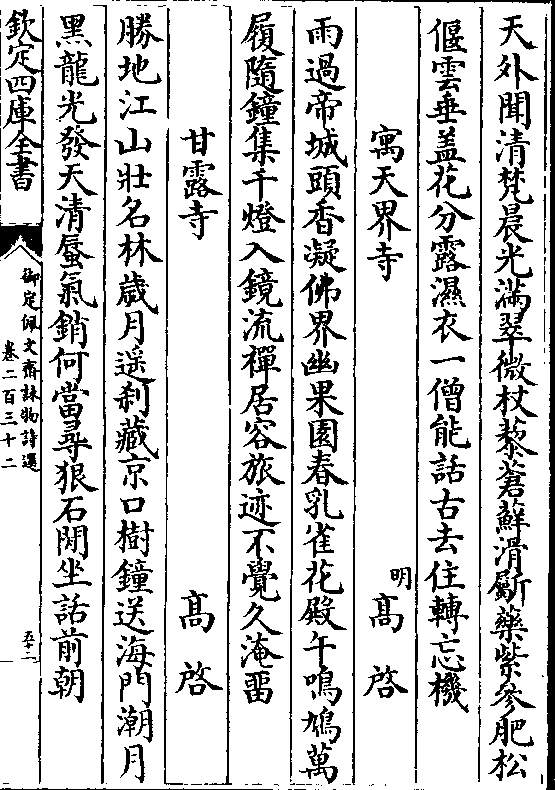 天外聞清梵晨光滿翠微杖藜蒼蘚滑斸藥紫參肥松
偃雲垂盖花分露濕衣一僧能話古去住轉忘機
寓天界寺 明 髙啓
雨過帝城頭香凝佛界幽果園春乳雀花殿午鳴鳩萬
履隨鐘集千燈入鏡流禪居容旅迹不覺久淹畱
甘露寺 髙啓
勝地江山壯名林歲月遥刹藏京口樹鐘送海門潮月
黒龍光發天清蜃氣銷何當尋狠石閒坐話前朝
欽定四庫全書
御定佩文齋詠物詩選
卷二百三十二
五十二